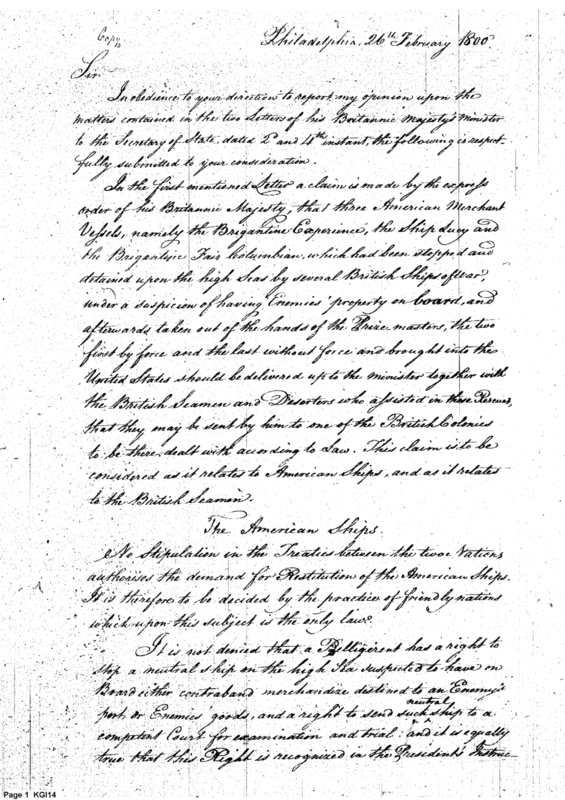 Copy
Philadelphia, 26th February 1800.
Sir
In obedience to your direction to report my opinion upon the
matters contained in the two Letters of his Britannic Majesty's Minister
to the Secretary of State, dated 2d and 4th instant, the following is respect-
fully submitted to your consideration.
In the first mentioned Letter a claim is made by the express
order of his Britannic Majesty, that three American Merchant
Vessels, namely the Brigantine Experience, the Ship Lucy and
the Brigantine Fair Columbian, which had been stopped and
detained upon the high Seas by several British Ships of war,
under a suspicion of having Enemies' property on board, and
afterwards taken out of the hands of the Prize masters, the two
first by force and the last without force and brought into the
United States should be delivered up to the minister together with
the British Seamen and Deserters who assisted in these Rescues,
that they may be sent by him to one of the British Colonies
to be there dealt with according to Law. This claim is to be
considered as it relates to American Ships, and as it relates
to the British Seamen.
The American Ships.
No Stipulation in the Treaties between the two Nations
authorises the demand for Restitution of the American Ships.
It is therefore to be decided by the practice of friendly nations
which upon this subject is the only law.
It is not denied that a Belligerent has a right to
stop a neutral ship on the high Sea suspected to have on
Board either contraband merchandize destined to an Enemy's
port, or Enemies' goods, and a right to send such neutral ship to a
competent Court for examination and trial: and it is equally
true that this Right is recognized in the President's Instruc-
Page 1 KGI14